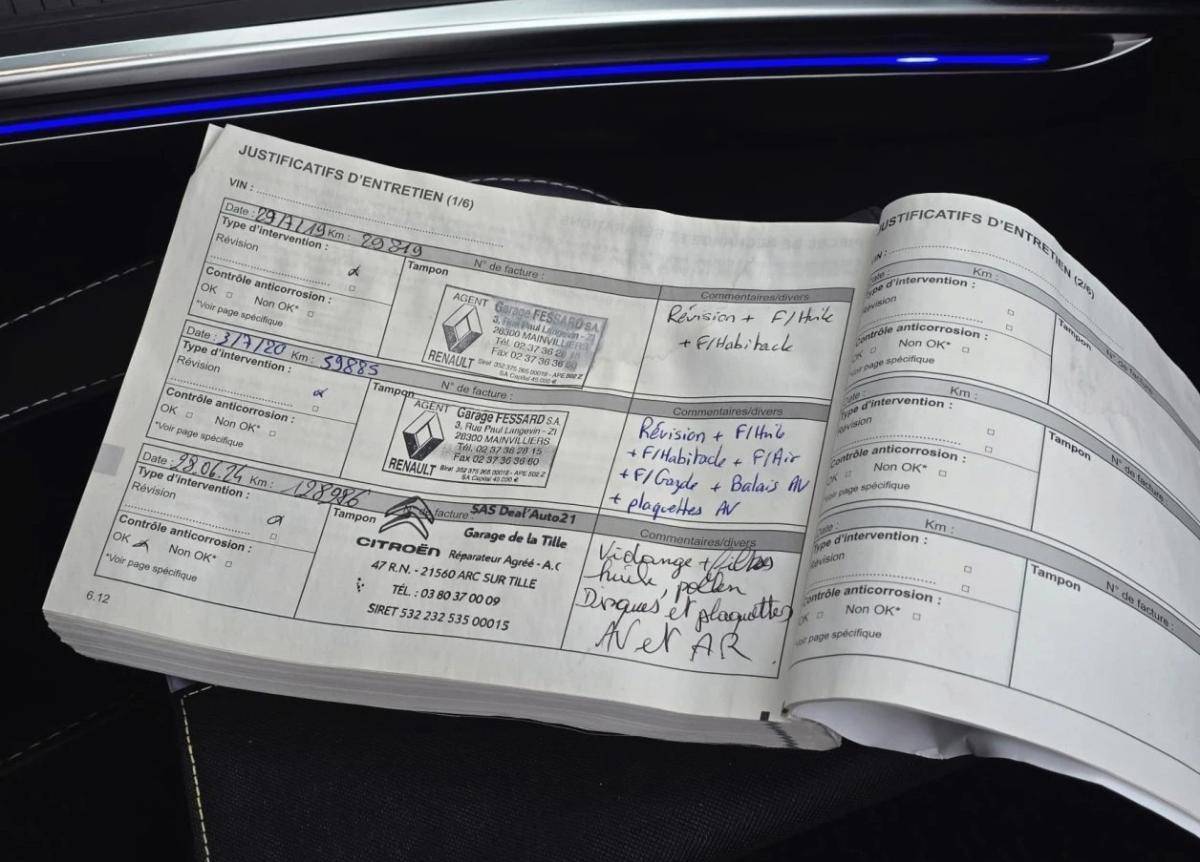 JUSTIFICATIFS D'ENTRETIEN (1/6)
VIN :
Date : 29/7/19 Km : 29819
Type d'intervention : N° de facture :
Révision Tampon Commentaires/divers
Contrôle anticorrosion :
OK Non OK*
*Voir page spécifique
AGENT
RENAULT
Garage FESSARD S.A.
3, Rue Paul Langevin - ZI
28300 MAINVILLIERS
Tél. 02 37 36 28 15
Fax 02 37 36 36 60
Siret 352 375 365 00019 - APE 502 Z
SA Capital 45.000 €
Révision + F/Huile
+ F/Habitacle
Date : 3/7/20 Km : 59885
Type d'intervention : N° de facture :
Révision Tampon Commentaires/divers
Contrôle anticorrosion :
OK Non OK*
*Voir page spécifique
AGENT
RENAULT
Garage FESSARD S.A.
3, Rue Paul Langevin - ZI
28300 MAINVILLIERS
Tél. 02 37 36 28 15
Fax 02 37 36 36 60
Siret 352 375 365 00019 - APE 502 Z
SA Capital 45.000 €
Révision + F/Huile
+ F/Habitacle + F/Air
+ F/Gazole + Balais AV
+ plaquettes AV
Date : 28.06.24 Km : 128986
Type d'intervention : facture :
Révision Tampon Commentaires/divers
Contrôle anticorrosion :
OK Non OK*
*Voir page spécifique
SAS Deal'Auto21
Garage de la Tille
CITROËN Réparateur Agréé - A.C
47 R.N. - 21560 ARC SUR TILLE
TÉL. : 03 80 37 00 09
SIRET 532 232 535 00015
Vidange + filtres
huile, pollen
Disques et plaquettes
AV et AR
6.12
JUSTIFICATIFS D'ENTRETIEN (2/6)
VIN :
Date : Km :
Type d'intervention : N° de facture
Révision Tampon
Contrôle anticorrosion :
OK Non OK*
*Voir page spécifique
Date : Km :
Type d'intervention : N° de facture
Révision Tampon
Contrôle anticorrosion :
OK Non OK*
*Voir page spécifique
Date : Km :
Type d'intervention : N° de facture :
Révision Tampon
Contrôle anticorrosion :
OK Non OK*
*Voir page spécifique